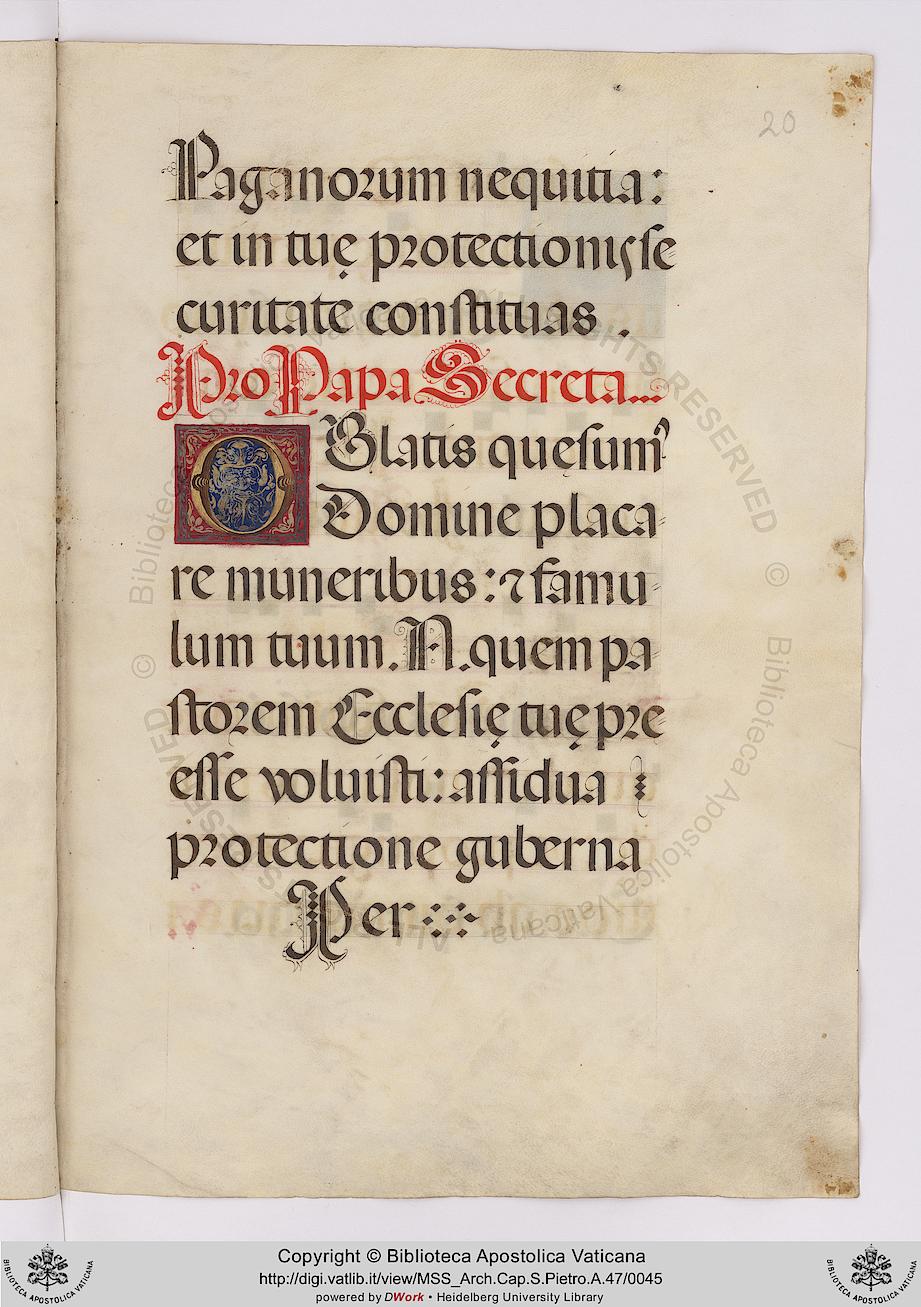 20
Paganorum nequitia:
et in tuę protectionis se
curitate constituas .
Pro Papa Secreta...
OBlatis quesumꝰ
Domine placa-
re muneribus: ⁊ famu-
lum tuum .N. quem pa-
storem Ecclesię tuę pre-
esse voluisti: assidua
protectione guberna
Per
© Biblioteca Apostolica Vaticana ALL RIGHTS RESERVED
© Biblioteca Apostolica Vaticana ALL RIGHTS RESERVED
Copyright © Biblioteca Apostolica Vaticana
http://digi.vatlib.it/view/MSS_Arch.Cap.S.Pietro.A.47/0045
powered by DWork • Heidelberg University Library
BIBLIOTECA APOSTOLICA VATICANA
BIBLIOTECA APOSTOLICA VATICANA